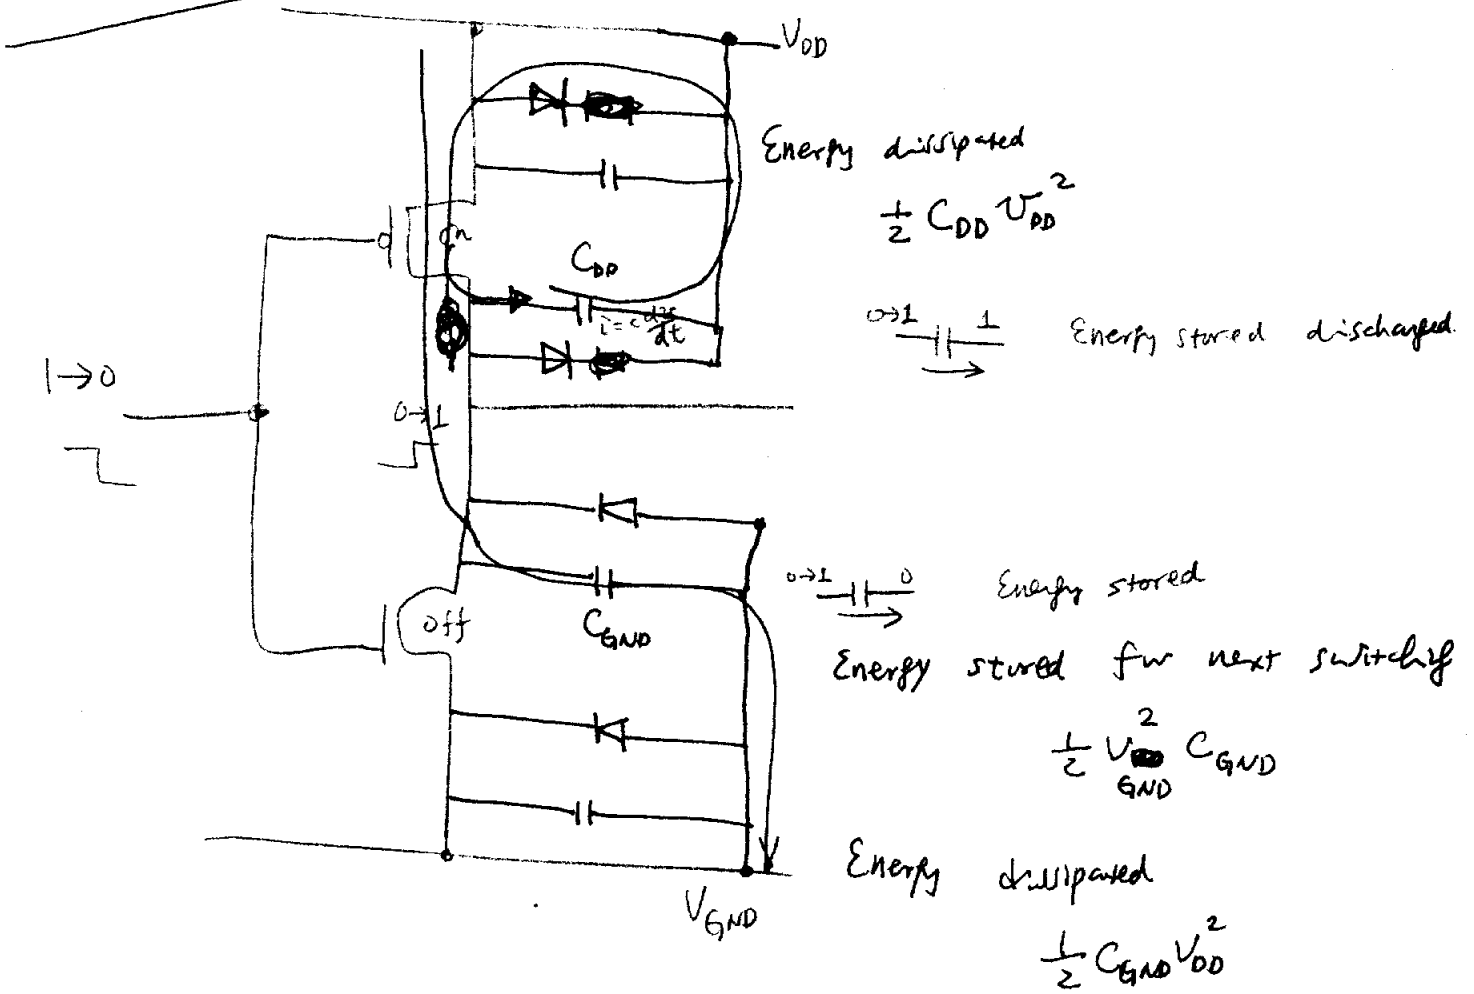 V_DD
Energy dissipated
½ C_DD V_DD²
on
C_DD
i = c dv/dt
0→1 1 Energy stored discharged.
1→0
0→1
0→1 0 Energy stored
off
C_GND
Energy stored for next switching
½ V_GND² C_GND
Energy dissipated
V_GND
½ C_GND V_DD²